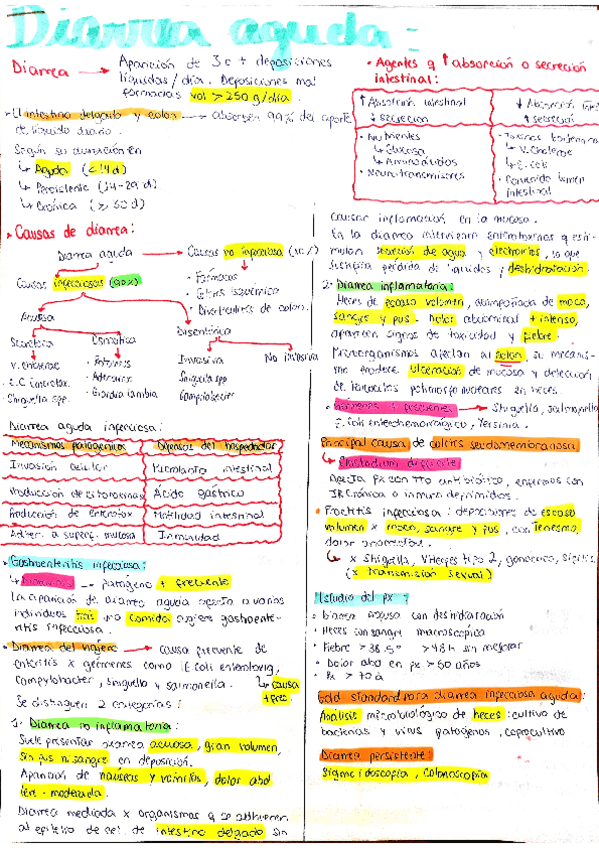 Diarrea aguda:
Diarrea → Aparición de 3 o + deposiciones
líquidas/día. Deposiciones mal
formadas vol > 250 g/día.
El intestino delgado y colon → absorben 99% del aporte
de líquido diario.
Según su duración en
↳ Aguda (≤14d)
↳ Persistente (14-29 d)
↳ Crónica (≥ 30 d)
• Causas de diarrea:
Diarrea aguda → Causas no infecciosas (10%)
• Fármacos
• Colitis isquémica
• Diverticulitis de colon.
Causas infecciosas (90%)
Acuosa
Disentérica
Secretora
Osmótica
Invasiva
No invasiva
V. cholerae
• E.C enterotox.
• Shiguella spp.
• Rotavirus
• Adenovirus
• Giardia lamblia
Shiguella spp
Campilobacter
Diarrea aguda infecciosa:
Mecanismos patogénicos
Defensas del hospedador
Invasión celular
Microbiota intestinal
Producción de citotoxinas
Ácido gástrico
Producción de enterotox
Motilidad intestinal
Adher. a superf. mucosa
Inmunidad
• Gastroenteritis infecciosa:
↳ patógeno + frecuente
La aparición de diarrea aguda a varios
individuos tras una comida sugiere gastroente-
ritis infecciosa.
• Diarrea del viajero → causa frecuente de
enteritis x gérmenes como E.Coli enterotoxig,
campylobacter, shiguella y salmonella.
↳ causa
+ frec.
Se distinguen 2 categorías:
1- Diarrea no inflamatoria:
Suele presentar diarrea acuosa, gran volumen,
sin pus ni sangre en deposición.
Aparición de nauseas y vómitos, dolor abd
leve-moderada.
Diarrea mediada x organismos q se adhieren
al epitelio de cel. de intestino delgado sin
• Agentes q ↑ absorción o secreción
intestinal:
↑ Absorción intestinal
↓ secreción
↓ Absorción
↑ secreción
• Nutrientes
↳ Glucosa
↳ Aminoácidos
• Neurotransmisores
• Toxinas
↳ V. Cholerae
↳ E. coli
• Contenido lumen
intestinal
causar inflamación en la mucosa.
En la diarrea intervienen enterotoxinas q esti-
mulan secreción de agua y electrolitos, lo que
pérdida de líquidos y deshidratación.
2- Diarrea inflamatoria:
Heces de escaso volumen, acompañada de moco,
sangre y pus. Dolor abdominal + intenso,
aparecen signos de toxicidad y fiebre.
Microorganismos afectan al colon, su mecanis-
mo produce ulceración de mucosa y detección
de leucocitos polimorfonucleares en heces.
• + frecuentes → Shigella, salmonella
E. Coli enterohemorrágico, Yersinia.
Principal causa de colitis seudomembranosa
↳ Clostridium difficile
Afecta px con TTO antibiótico, enfermos con
IR crónica o inmunodeprimidos.
• Proctitis infecciosa: deposiciones de escaso
volumen x moco, sangre y pus, con tenesmo,
dolor anorrectal.
↳ x Shigella, V. Herpes tipo 2, gonococo, sífilis
(x transmisión sexual)
Estudio del px:
• Diarrea acuosa con deshidratación
• Heces con sangre macroscópica
• Fiebre > 38.5° > 48h sin mejorar
• Dolor abd en px > 50 años
• Px > 70 a
Gold standard para diarrea infecciosa aguda:
Análisis microbiológico de heces: cultivo de
bacterias y virus patógenos, coprocultivo
Diarrea persistente:
Sigmoidoscopía, colonoscopía